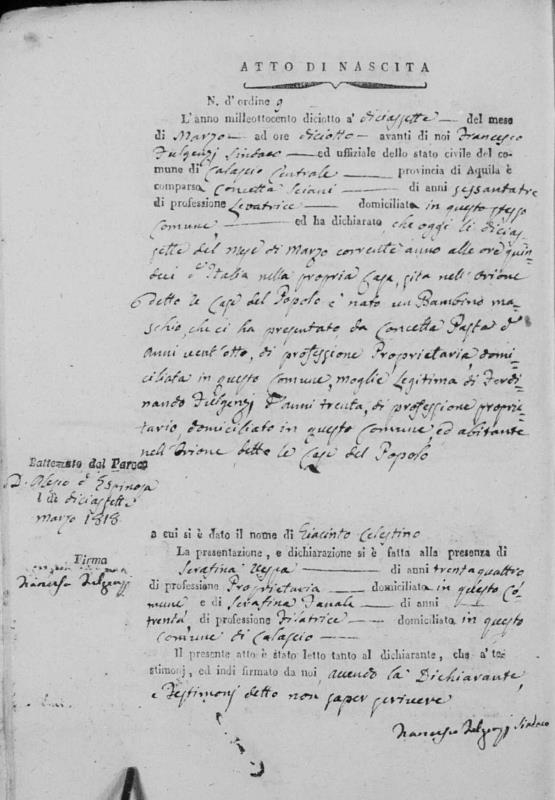 ATTO DI NASCITA
N. d'ordine 9
L'anno milleottocento diciotto a' diciassette del mese
di Marzo ad ore diciotto avanti di noi Francesco
Fulgenzj Sindaco ed uffiziale dello stato civile del co-
mune di Calascio Centrale provincia di Aquila è
comparsa Concetta Sciani di anni sessantatre
di professione Levatrice domiciliata in questo stesso
Comune ed ha dichiarato, che oggi li dicias-
sette del mese di Marzo corrente anno alle ore quin-
deci d'Italia nella propria Casa, sita nell'Orione
detto le Case del Popolo è nato un Bambino ma-
schio, che ci ha presentato da Concetta Pasta d'
anni vent'otto, di professione Proprietaria, domi-
ciliata in questo Comune, moglie legitima di Ferdi-
nando Fulgenzj d'anni trenta, di professione proprie-
tario, domiciliato in questo Comune ed abitante
nell'Orione detto le Case del Popolo
Battezzato dal Paroco
D. d'Espinosa
li diciassette
marzo 1818
a cui si è dato il nome di Giacinto Celestino
La presentazione, e dichiarazione si è fatta alla presenza di
Serafina di anni trentaquattro
di professione Proprietaria domiciliata in questo Co-
mune e di Serafina di anni
trenta, di professione Filatrice domiciliata in questo
Comune di Calascio
Il presente atto è stato letto tanto al dichiarante, che a' tes
timonj, ed indi firmato da noi, avendo la Dichiarante,
e Testimonj detto non saper scrivere
Firma
Francesco Fulgenzj
Francesco Fulgenzj Sindaco